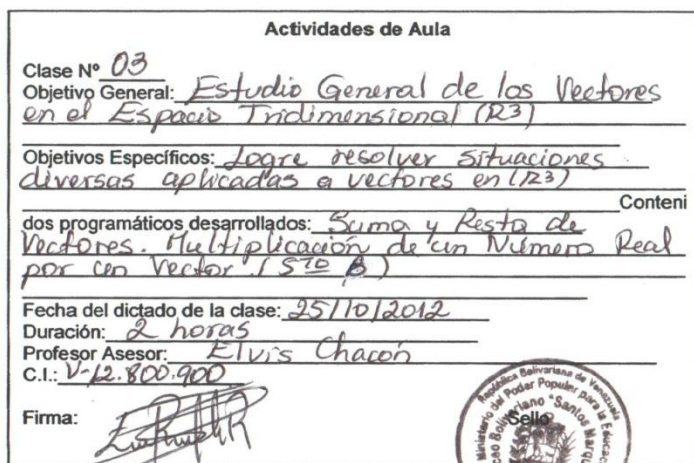 Actividades de Aula
Clase Nº 03
Objetivo General: Estudio General de los Vectores
en el Espacio Tridimensional (R3)
Objetivos Específicos: Logre resolver situaciones
diversas aplicadas a vectores en (R3)
Conteni
dos programáticos desarrollados: Suma y Resta de
Vectores. Multiplicación de un Número Real
por un Vector. (5TO B)
Fecha del dictado de la clase: 25/10/2012
Duración: 2 horas
Profesor Asesor: Elvis Chacón
C.I.: V-12.800.900
Firma:
Sello
República Bolivariana de Venezuela
Ministerio del Poder Popular para la Educac
Liceo Bolivariano "Santos Marqu